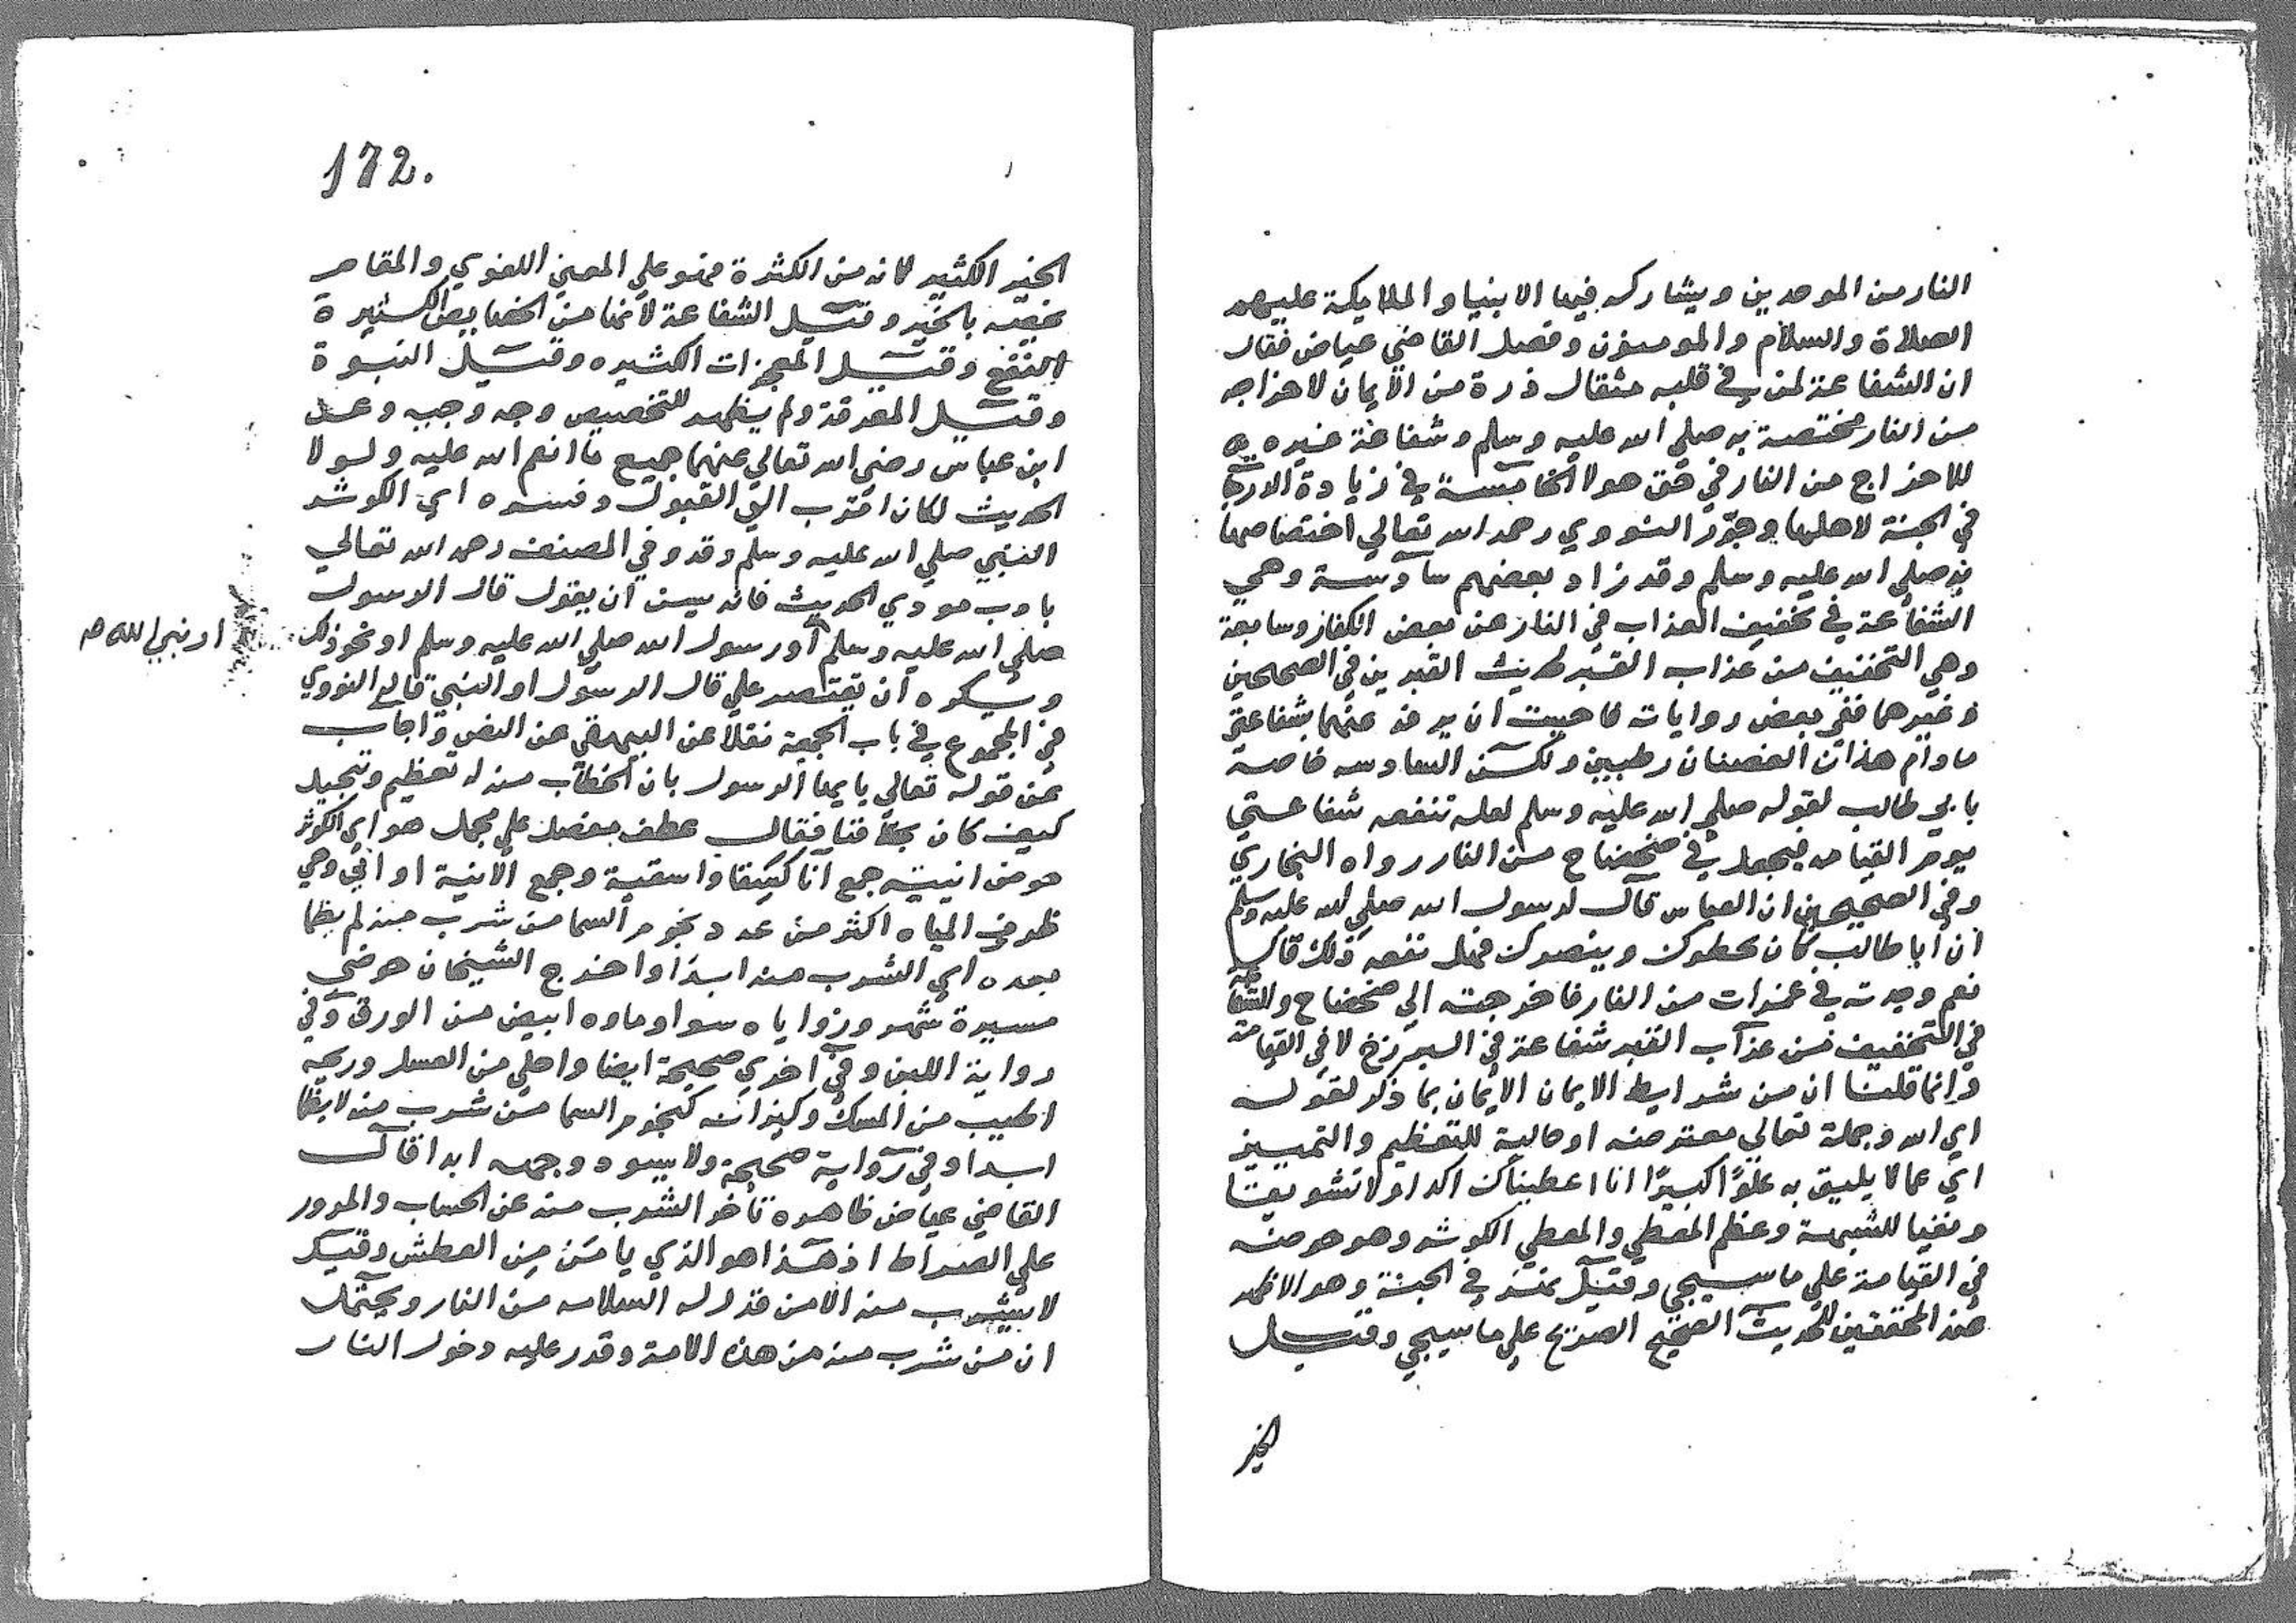 النار من الموحدين ويشاركه فيها الانبيا والملايكة عليهم
الصلاة والسلام والمومنون وفصل القاضي عياض فقال
ان الشفاعة لمن في قلبه مثقال ذرة من الايمان لاخراجه
من النار مختصة به صلي الله عليه وسلم وشفاعة غيره
للاخراج من النار في حق هولا الخامسة في زيادة الدرجة
في الجنة لاهلها وجوّز النووي رحمه الله تعالي اختصاصها
به صلي الله عليه وسلم وقد زاد بعضهم سادسة وهي
الشفاعة في تخفيف العذاب في النار عن بعض الكفار وسابعة
وهي التخفيف من عذاب القبر لحديث القبرين في الصحيحين
وغيرهما ففي بعض روايات فاحببت ان يرفه عنهما بشفاعتي
مادام هذان الغصنان رطبين ولكن السادسه خاصة
بابي طالب لقوله صلي الله عليه وسلم لعله تنفعه شفاعتي
يوم القيامه فيجعل في ضحضاح من النار رواه البخاري
وفي الصحيحين ان العباس قال لرسول الله صلي الله عليه وسلم
ان ابا طالب كان يحطوك وينصرك فهل نفعه ذلك قال
نعم وجدته في غمرات من النار فاخرجته الي ضحضاح والشفاعة
في التخفيف من عذاب القبر شفاعة في البرزخ لا في القيامة
وانما قلنا ان من شرايط الايمان الايمان بما ذكر لقوله
اي الله وجملة تعالي معترضه او حالية للتعظيم والتمييز
اي عما لا يليق به علوًا كبيرًا انا اعطيناك اكد اولا تشويقا
ونفيا للشبهة وعظم المعطي والمعطي الكوثر وهو حوضه
في القيامة علي ما سيجي وقيل نهر في الجنة وهو الاظهر
عند المحققين للحديث الصحيح الصريح علي ما سيجي وقيل
الخير
172.
الخير الكثير لانه من الكثرة فهو علي المعني اللغوي والمقام
يخصه بالخير وقيل الشفاعة لانها من الخصايص الكثيرة
النفع وقيل المعجزات الكثيره وقيل النبوة
وقيل المعرفة ولم يظهر للتخصيص وجه وجيه وعن
ابن عباس رضي الله تعالي عنهما جميع ما انعم الله عليه ولولا
الحديث لكان اقرب الي القبول وفسره اي الكوثر
النبي صلي الله عليه وسلم وقد وفي المصنف رحمه الله تعالي
بادب مودي الحديث فانه يسن ان يقول قال الرسول
صلي الله عليه وسلم او رسول الله صلي الله عليه وسلم او نحو ذلك
او نبي الله صم
ويكره ان يقتصر علي قال الرسول او النبي قاله النووي
في المجموع في باب الجمعة نقلا عن البيهقي عن النص واجاب
عن قوله تعالي يايها الرسول بان الخطاب منه له تعظيم وتبجيل
كيف كان بخلافنا فقال عطف مفصل علي مجمل هو اي الكوثر
حوض انيته جمع انا كسقا واسقية وجمع الانية اواني وهي
ظروف المياه اكثر من عدد نجوم السما من شرب منه لم يظما
بعده اي الشرب منه ابدًا واخرج الشيخان حوضي
مسيرة شهر وزواياه سوا وماوه ابيض من الورق وفي
رواية اللبن وفي اخري صحيحة ايضا واحلي من العسل وريحه
اطيب من المسك وكيزانه كنجوم السما من شرب منه لا يظما
ابدا وفي رواية صحيحة ولا يسود وجهه ابدا قال
القاضي عياض ظاهره تاخر الشرب منه عن الحساب والمرور
علي الصراط اذ هذا هو الذي يامن من العطش وقيل
لا يشرب منه الا من قدر له السلامه من النار ويحتمل
ان من شرب منه من هذه الامة وقدر عليه دخول النار